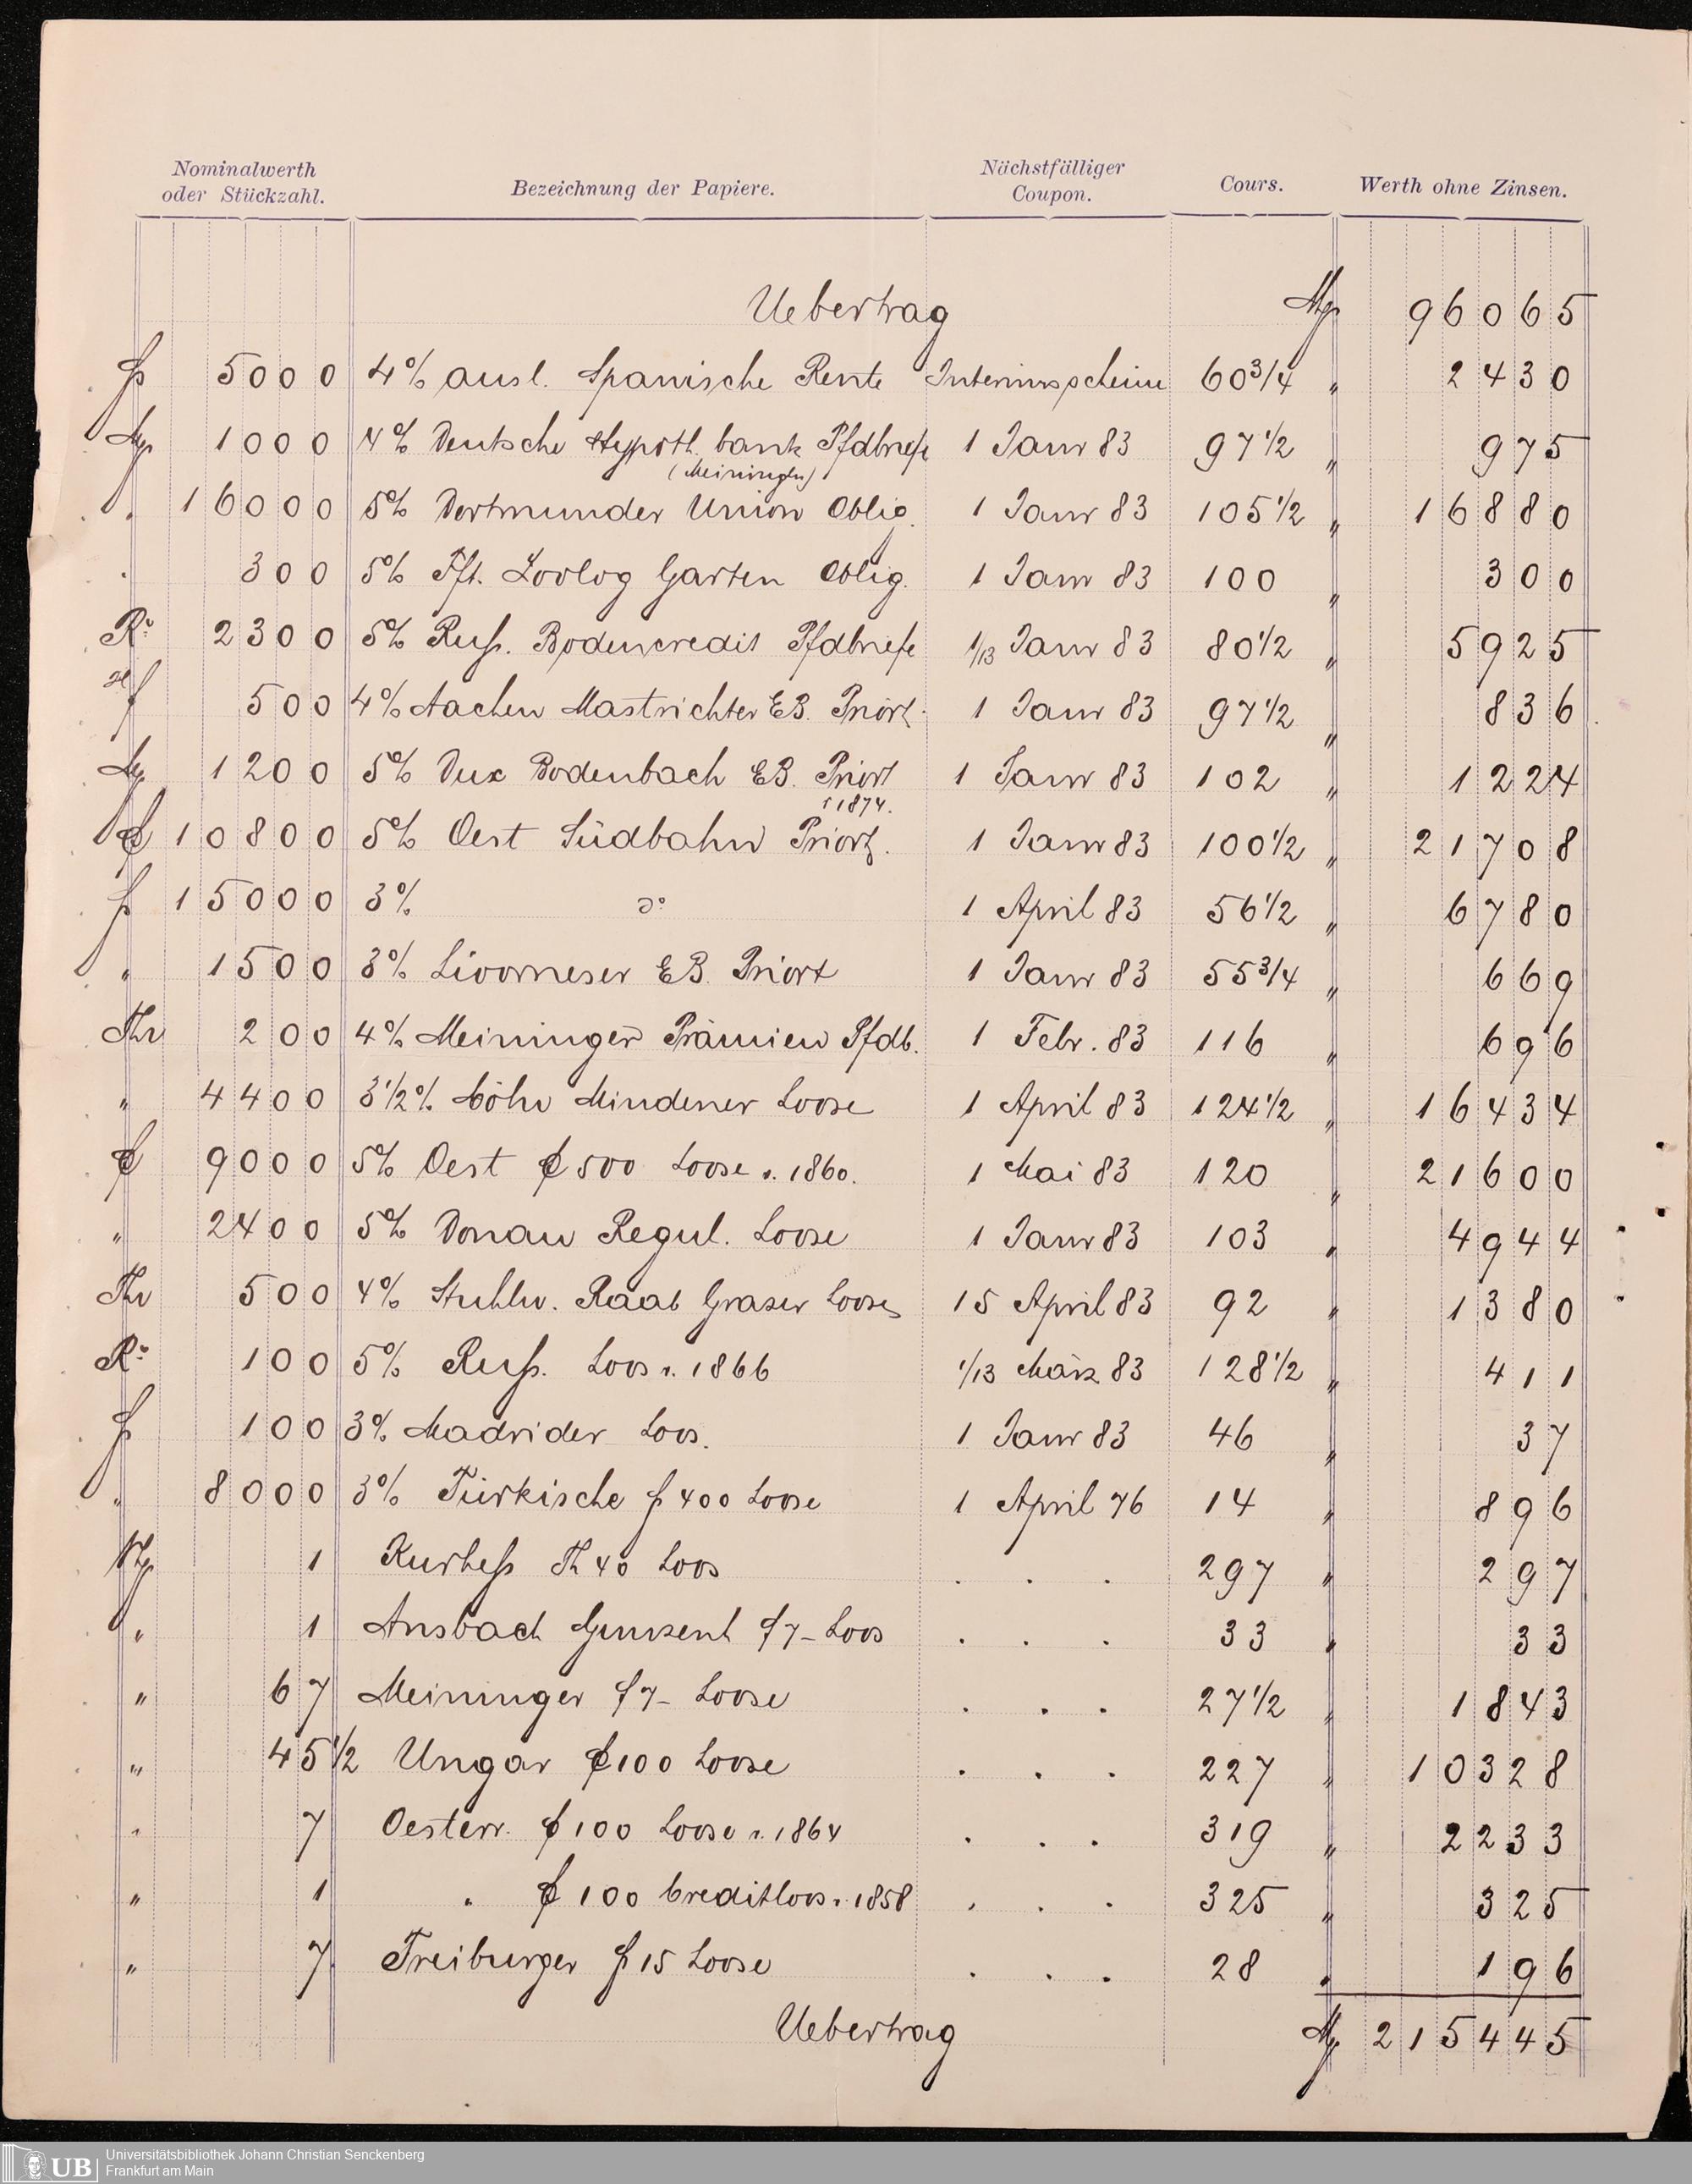 Nominalwerth oder Stückzahl. Bezeichnung der Papiere. Nächstfälliger Coupon. Cours. Werth ohne Zinsen.
Uebertrag M 96065
f 5000 4% ausl. Spanische Rente Interimsscheine 60 3/4 " 2430
M 1000 4% Deutsche Hypoth. bank Pfdbriefe 1 Janr 83 97 1/2 " 975
(Meiningen)
" 16000 5% Dortmunder Union Oblig. 1 Janr 83 105 1/2 " 16880
" 300 5% Fft. Zoolog Garten Oblig. 1 Janr 83 100 " 300
Ro 2300 5% Russ. Bodencredit Pfdbriefe 1/13 Janr 83 80 1/2 " 5925
f 500 4% Aachen Mastrichter EB. Priort. 1 Janr 83 97 1/2 " 836
M 1200 5% Dux Bodenbach EB. Priort 1 Janr 83 102 " 1224
v 1874.
fl 10800 5% Oest Südbahn Priort. 1 Janr 83 100 1/2 " 21708
f 15000 3% do 1 April 83 56 1/2 " 6780
" 1500 3% Livorneser EB. Priort 1 Janr 83 55 3/4 " 669
Thr 200 4% Meininger Prämien Pfdb. 1 Febr. 83 116 " 696
" 4400 3 1/2% Cöln Mindener Loose 1 April 83 124 1/2 " 16434
fl 9000 5% Oest fl 500 Loose v. 1860. 1 Mai 83 120 " 21600
" 2400 5% Donau Regul. Loose 1 Janr 83 103 " 4944
Thr 500 4% Stuhlw. Raab Grazer Loose 15 April 83 92 " 1380
Ro 100 5% Russ. Loos v. 1866 1/13 März 83 128 1/2 " 411
f 100 3% Madrider Loos. 1 Janr 83 46 " 37
" 8000 3% Türkische f 400 Loose 1 April 76 14 " 896
M 1 Kurhess Th 40 Loos . . . 297 " 297
" 1 Ansbach Gunzenh f 7- Loos . . . 33 " 33
" 67 Meininger f 7- Loose . . . 27 1/2 " 1843
" 45 1/2 Ungar fl 100 Loose . . . 227 " 10328
" 7 Oesterr. fl 100 Loose v. 1864 . . . 319 " 2233
" 1 " fl 100 Creditloos v. 1858 . . . 325 " 325
" 7 Freiburger f 15 Loose . . . 28 " 196
Uebertrag M 215445
UB Universitätsbibliothek Johann Christian Senckenberg
Frankfurt am Main